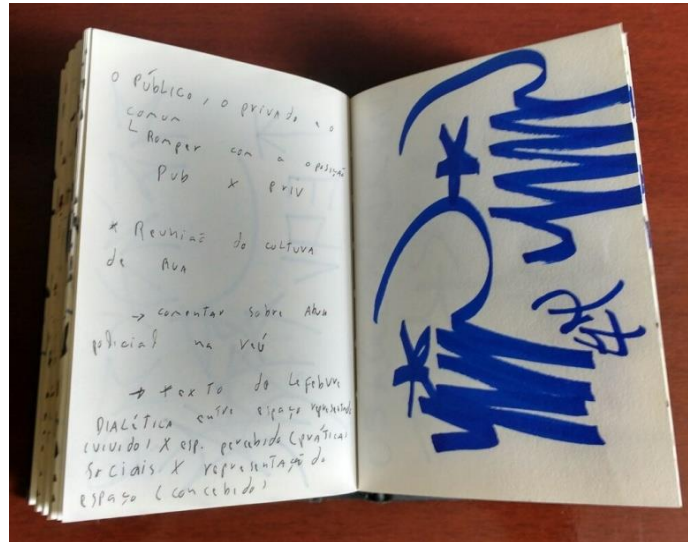 O PÚBLICO, o privado e o
comum
↳ Romper com a oposição
Pub x priv
* Reunião do cultura
de RUA
→ comentar sobre Abuso
policial na
→ texto do Lefebvre
DIALÉTICA entre espaço representado
(vivido) X esp. percebido (práticas
Sociais X representação do
espaço (concebido)